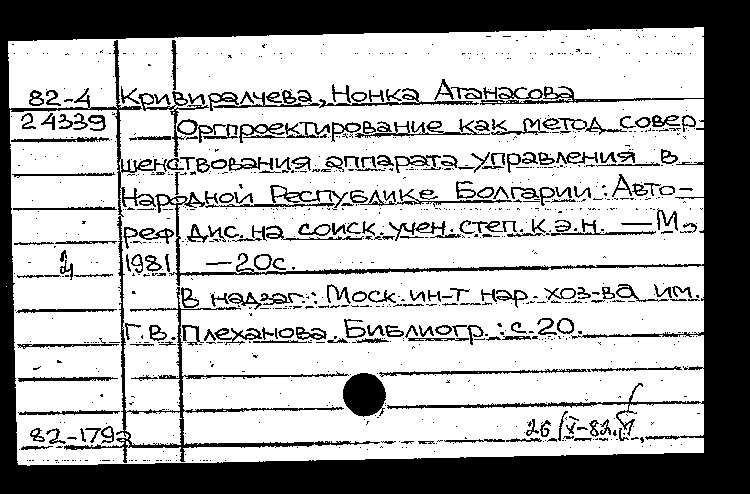 82-4 Кривиралчева, Нонка Атанасова
24339 Оргпроектирование как метод совер-
шенствования аппарата управления в
Народной Республике Болгарии: Авто-
реф. дис. на соиск. учен. степ. к.э.н. — М.,
1981 — 20с.
В надзаг.: Моск. ин-т нар. хоз-ва им.
Г.В. Плеханова. Библиогр.: с. 20.
82-1792 26/V-82.